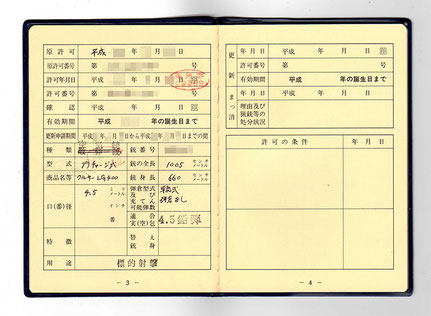 原許可 平成 年 月 日
原許可番号 第 号
許可年月日 平成 年 月 日
許可番号 第 号
確認 平成 年 月 日
有効期間 平成 年の誕生日まで
更新申請期間 平成 年 月 日から平成 年 月 日までの間
種類 空気銃 銃番号
型式 銃の全長 1005 センチメートル
商品名等 ワルサーLG400 銃身長 660 センチメートル
口(番)径 4.5 ミリメートル インチ 番
弾倉型式及び充てん可能弾数 単発式 弾倉なし
適合実(空)包 4.5鉛弾
特徴 替え銃身
用途 標的射撃
- 3 -
更新 まつ消
年月日 平成 年 月 日
許可番号 第 号
有効期間 平成 年の誕生日まで
年月日 平成 年 月 日
理由及び猟銃等の処分状況
許可の条件 年月日
- 4 -